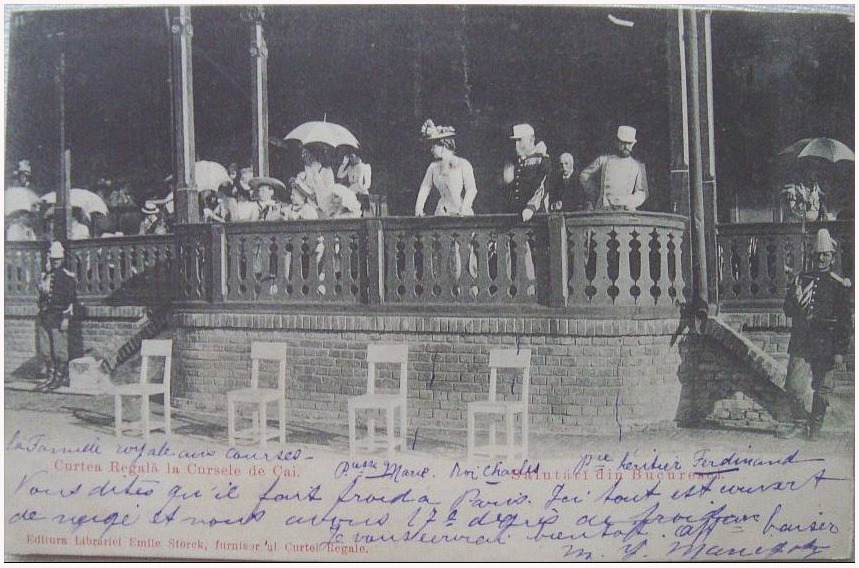 la Famille royale aux courses -
Curtea Regală la Cursele de Cai.
Salutări din Bucuresci.
Psse Marie. Roi Charles Pce héritier Ferdinand
Vous dites qu'il fait froid a Paris. Ici tout est couvert
de neige et nous avons 17e degrés de froid
Je vous ecrirai bientôt. baiser
Editura Librăriei Emile Storck, furnisor al Curtei Regale.
M. Y.